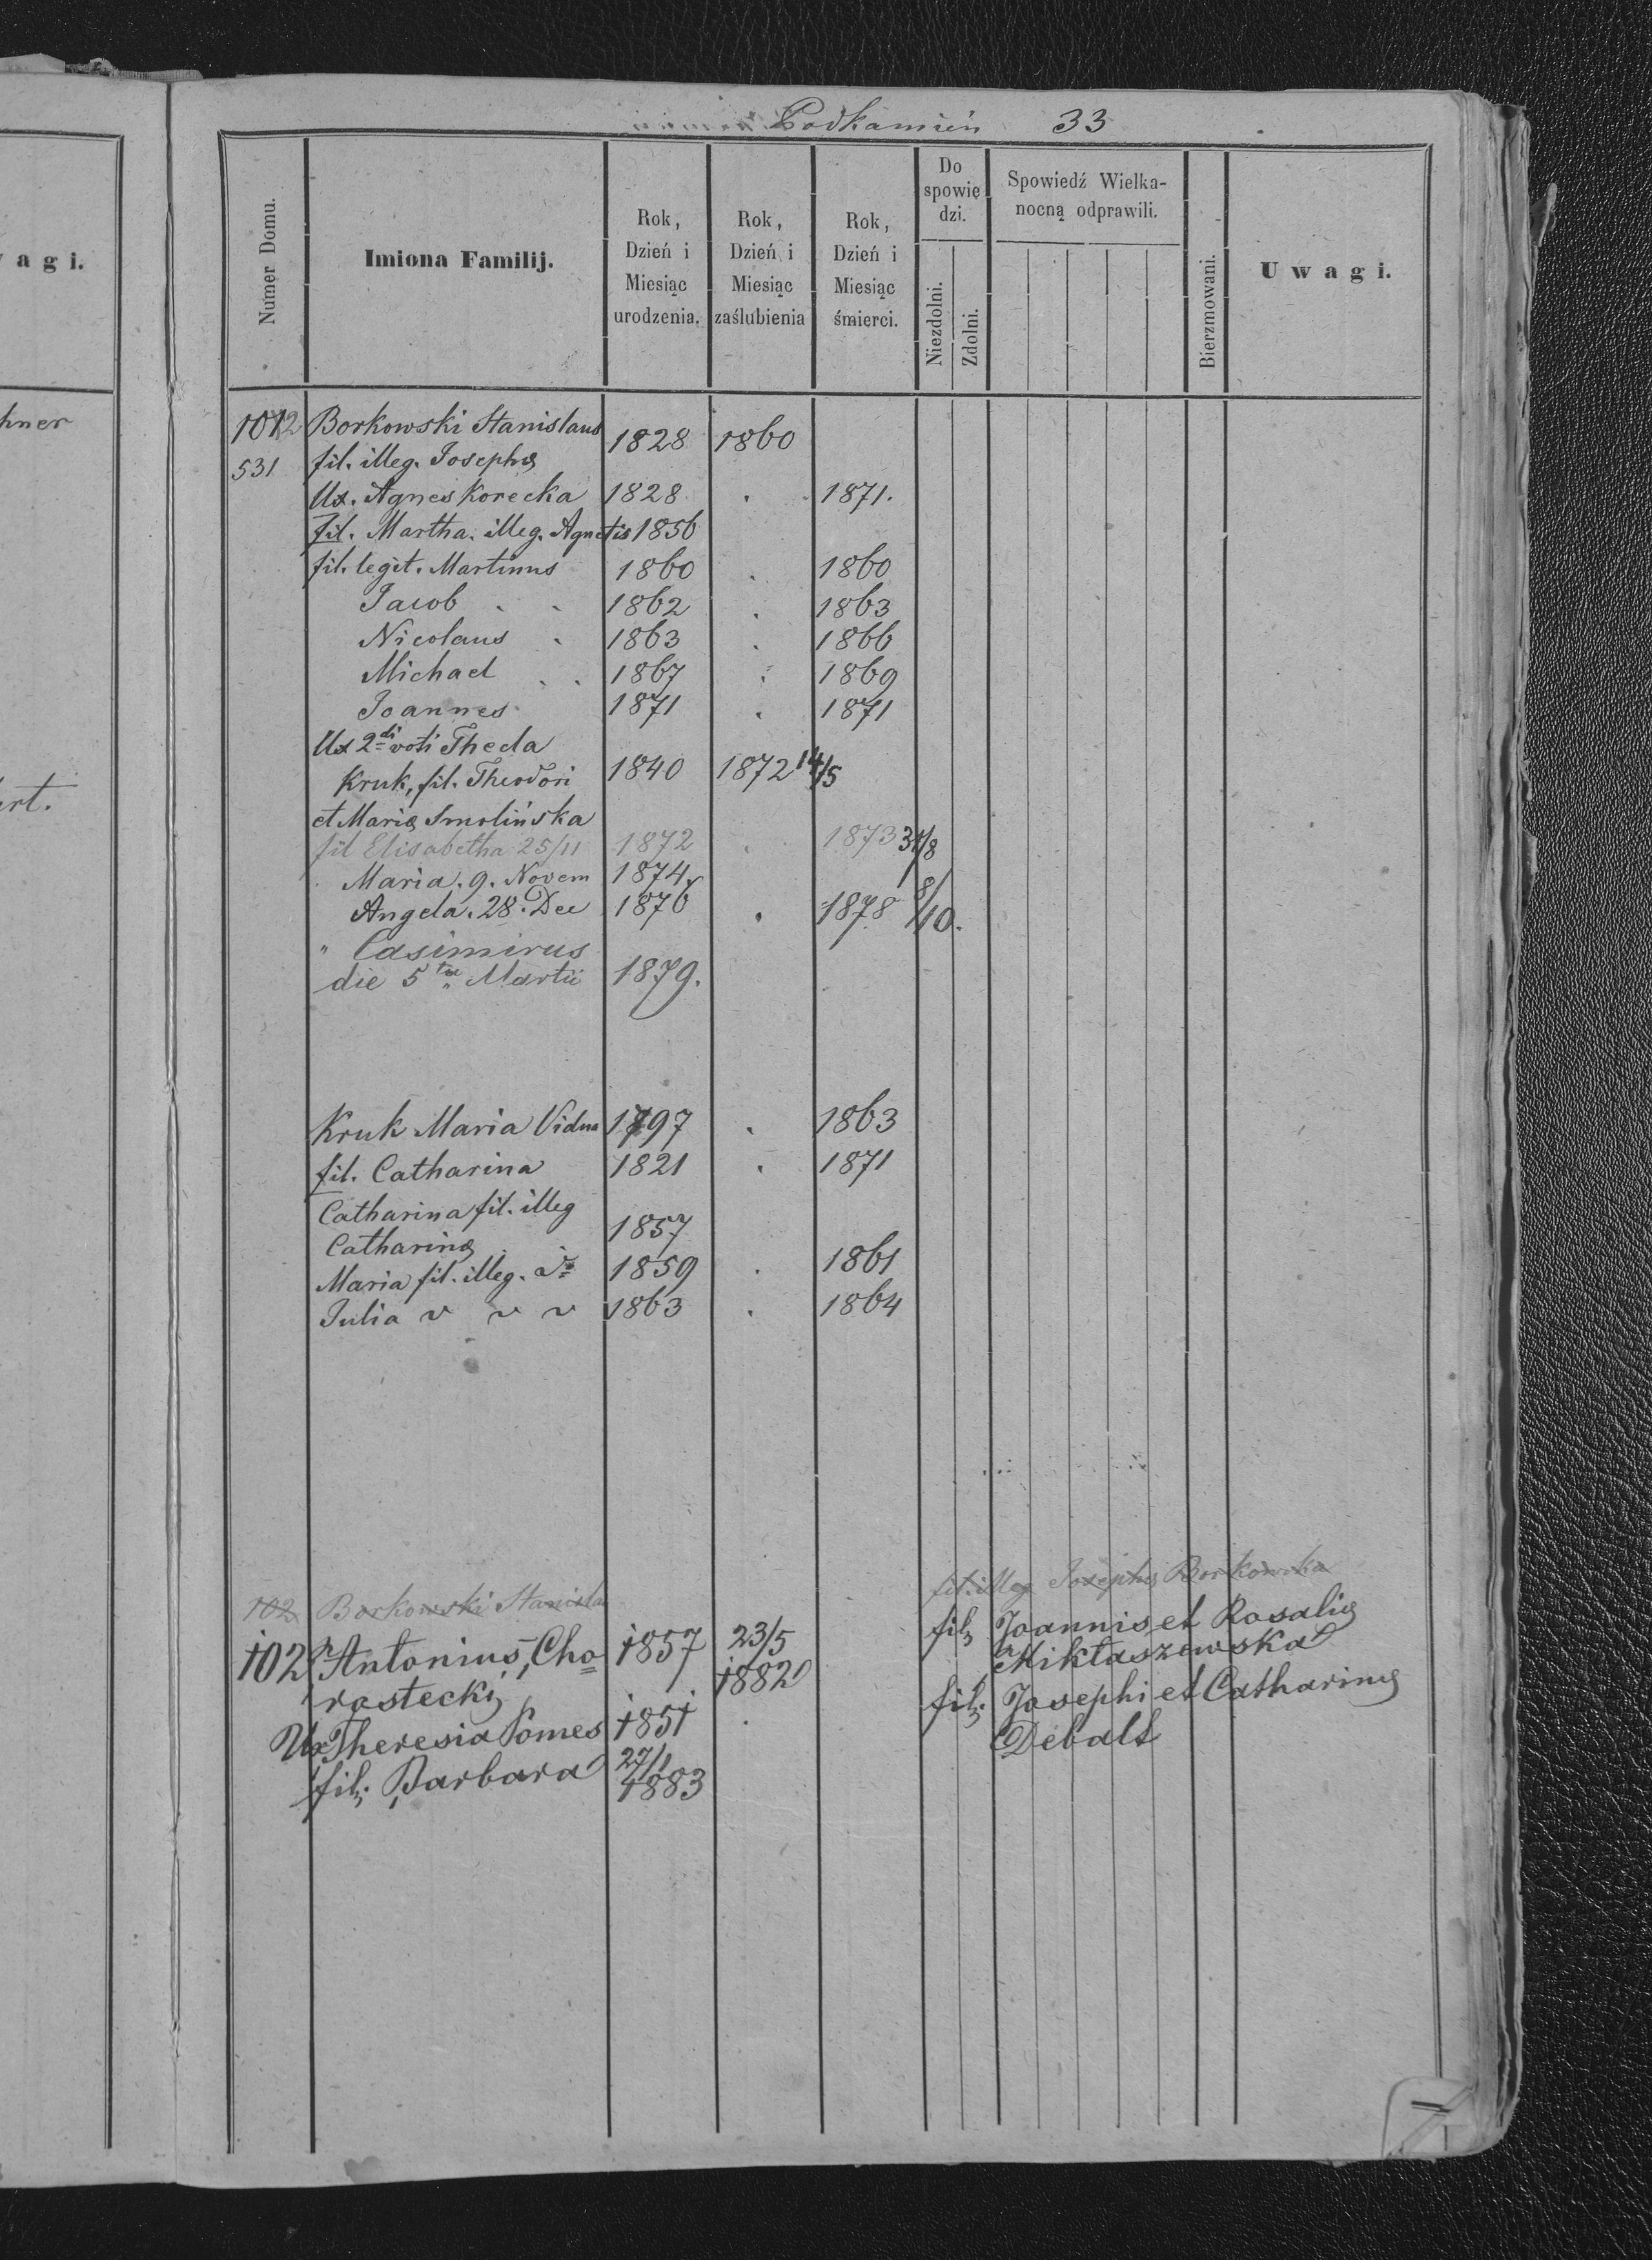 Podkamień 33
agi.
Numer Domu.
Imiona Familij.
Rok, Dzień i Miesiąc urodzenia.
Rok, Dzień i Miesiąc zaślubienia
Rok, Dzień i Miesiąc śmierci.
Do spowie dzi.
Niezdolni.
Zdolni.
Spowiedź Wielka-
nocną odprawili.
Bierzmowani.
Uwagi.
hner
ert.
1012 Borkowski Stanislaus 1828 1860
531 fil. illeg. Josephæ
Ux. Agnes Korecka 1828 . 1871.
fil. Martha. illeg. Agnetis 1856
fil. legit. Martinus 1860 . 1860
Jacob . . 1862 . 1863
Nicolaus . 1863 . 1866
Michael . . 1867 . 1869
Joannes 1871 . 1871
Ux 2di voti Thecla
Kruk, fil. Theodori 1840 1872 14/5
et Mariæ Smolińska
fil Elisabetha 25/11 1872 . 1873 31/8
Maria. 9. Novem 1874.
Angela. 28. Dec 1876 . 1878 8/10.
" Casimirus
die 5ta Martii 1879.
Kruk Maria Vidua 1797 . 1863
fil. Catharina 1821 . 1871
Catharina fil. illeg
Catharinæ 1857
Maria fil. illeg. 1859 . 1861
Julia v v v 1863 . 1864
102 Borkowski Stanisla fil. illeg Josephæ Borkowska
102 Antonius, Cho= 1857 23/5 1882 fil. Joannis et Rosaliæ
rostecki Mikłaszewska
Ux Theresia Pomes 1851 . fil. Josephi et Catharinæ
Debalt
fil. Barbara 27/1 1883